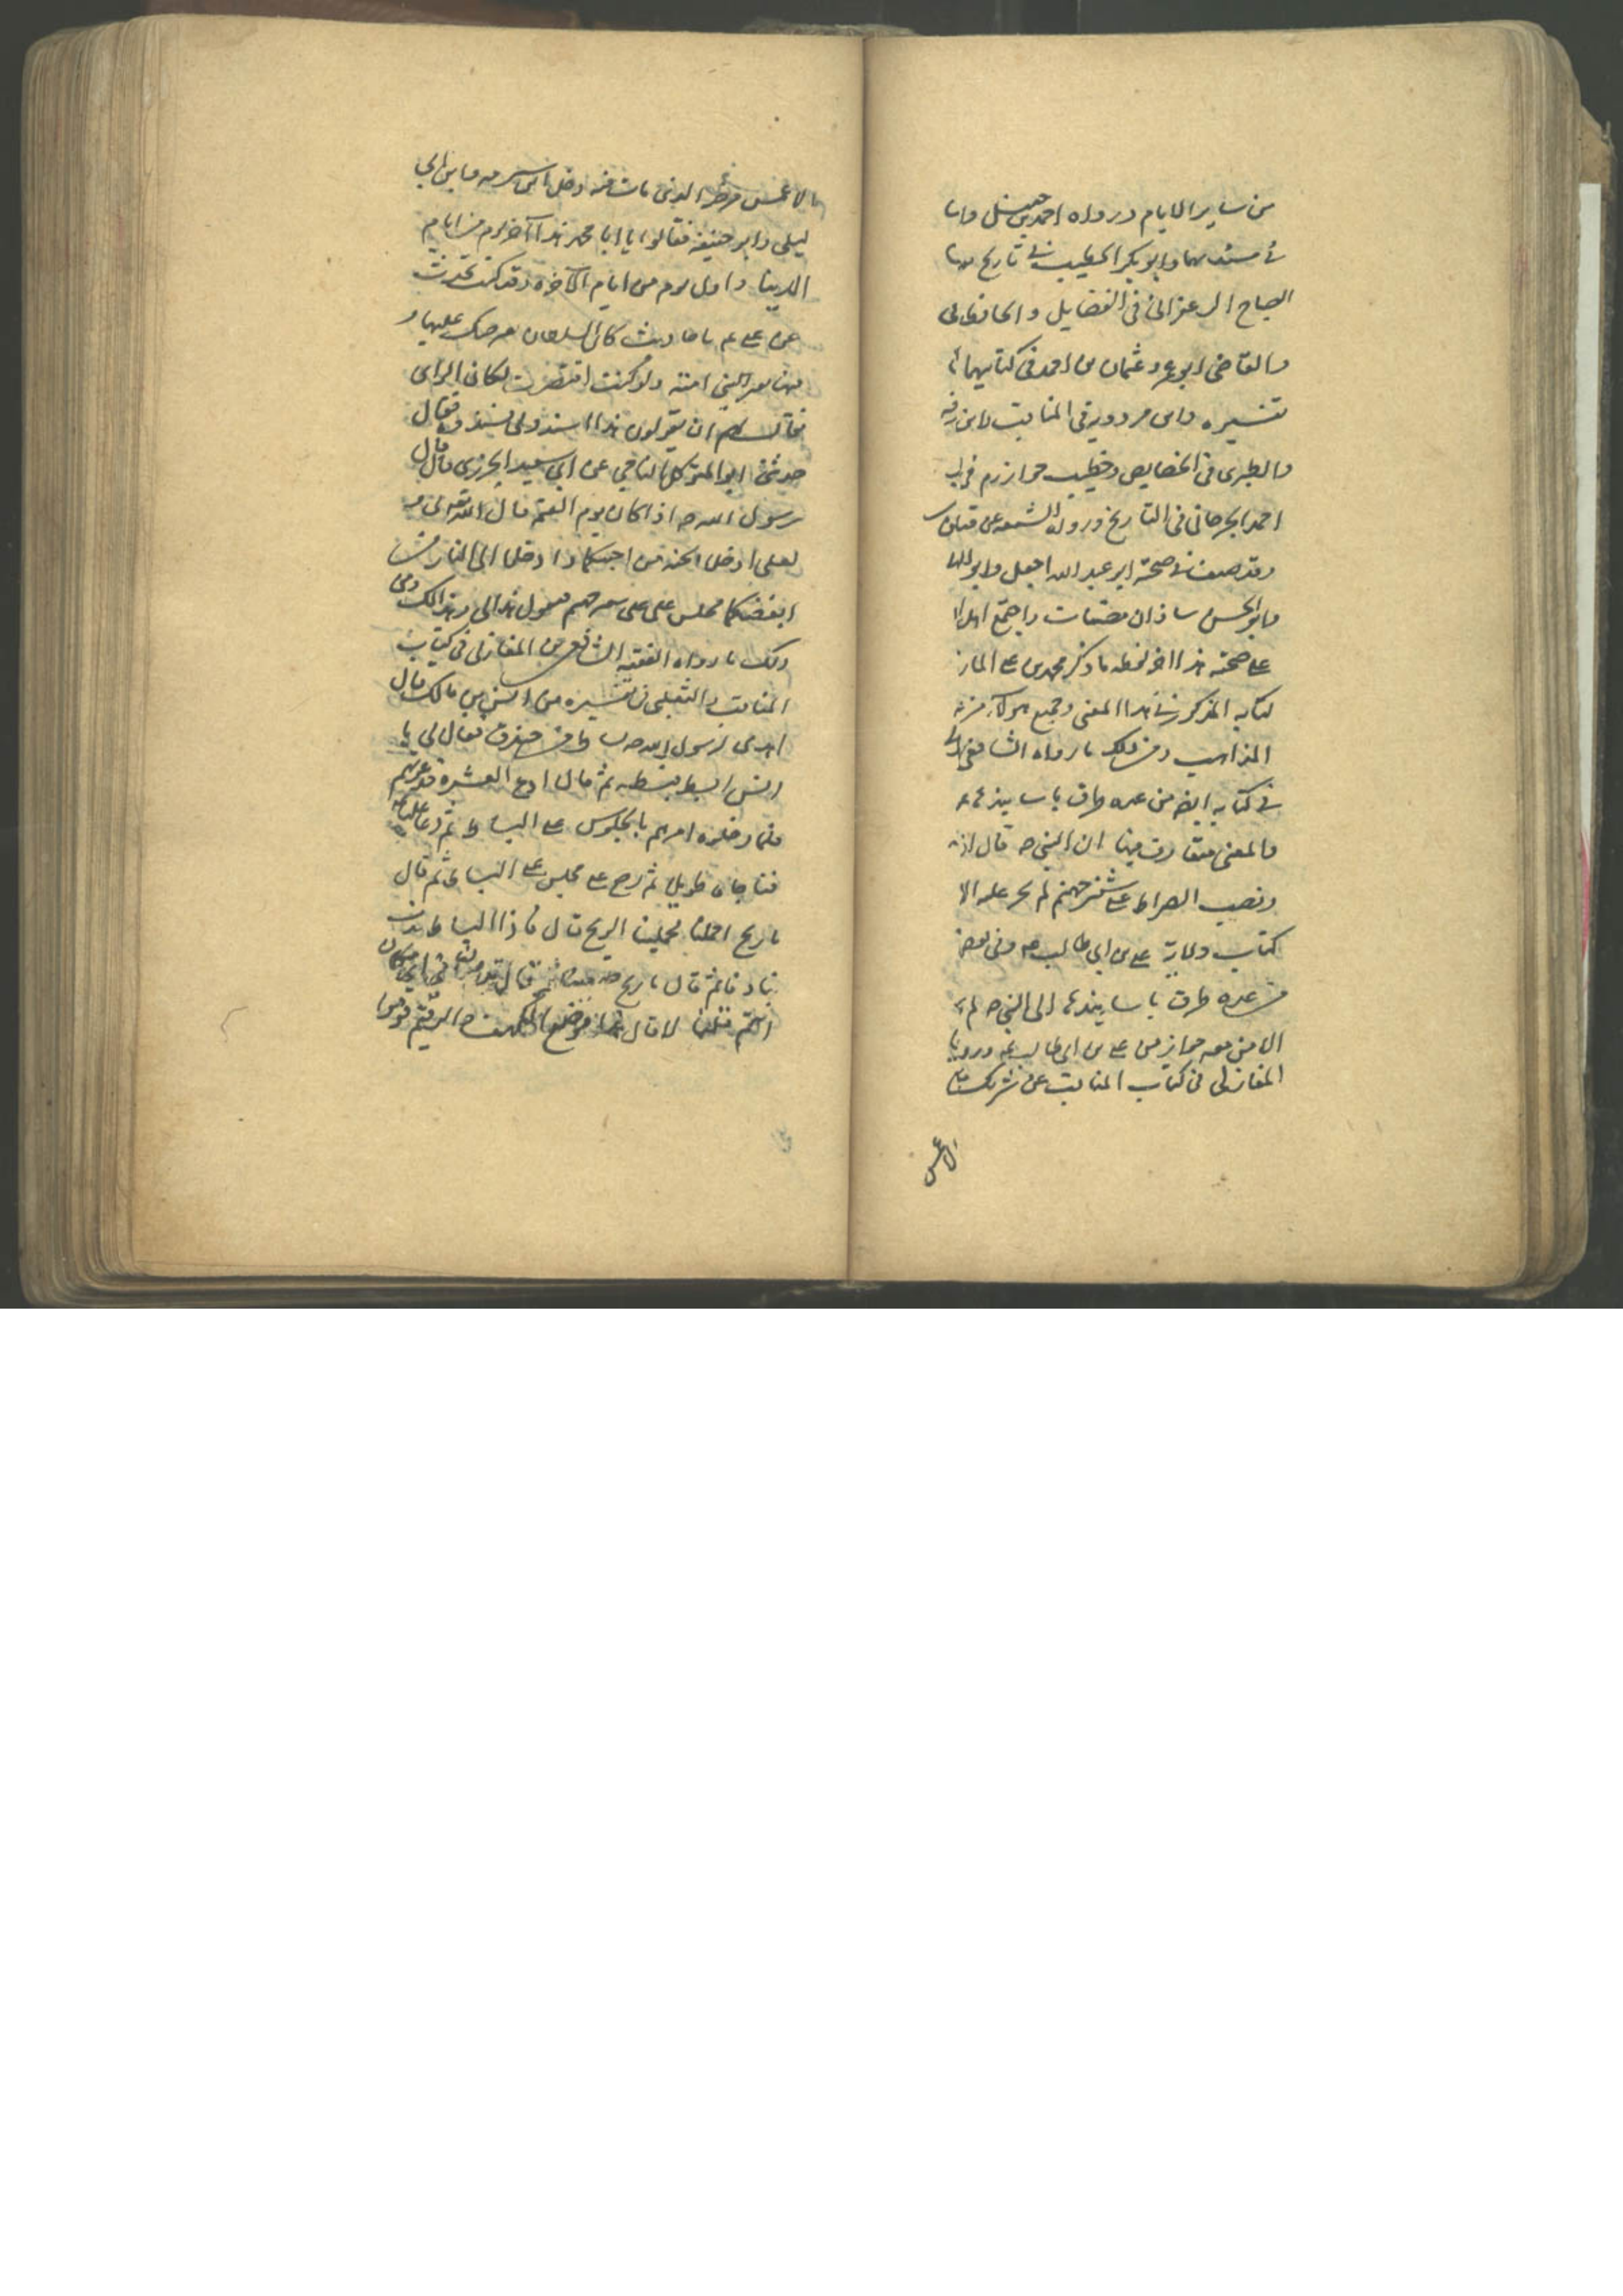 من ساير الايام ورواه احمد بن حنبل وابا
في مسنديهما وابو بكر الخطيب في تاريخ
الصباح الزعفراني في الفضايل والحافظ
والقاضي ابو عمرو عثمان بن احمد في كتابيهما
تفسيره وابن مردويه في المناقب
والطبري في الخصايص وخطيب خوارزم في
احمد الجرجاني في التاريخ ورواه الشيعه عن
وقد صنف في صحته ابو عبد الله الجعل وابو
وابو الحسن شاذان مصنفات واجمع اهل
على صحته هذا اخر لفظه ما ذكر محمد بن على
كتابه المذكور في هذا المعنى وجميع هولاء من
المذاهب ومن ذلك ما رواه الشافعي
في كتابه ايضا من عده طرق باسانيدها
والمعنى متقارب فيها ان النبي ص قال اذا
ونصب الصراط على شفير جهنم لم يجز عليه الا
كتاب ولاية على بن ابى طالب ع وفي بعض
من عده طرق باسانيدها الى النبي ص لم
الا من معه جواز من على بن ابى طالب ع وروى
المغازلى في كتاب المناقب عن شريك
الاعمش
الاعمش مرضه الذي مات فيه اذ دخل ابن شبرمه وابن ابي
ليلى وابو حنيفه فقالوا يا ابا محمد هذا آخر يوم من ايام
الدنيا واول يوم من ايام الآخره وقد كنت تحدث
عن على ع باحاديث كان السلطان يعرضك عليها و
فيها تعير بني اميه ولو كنت اقتصرت لكان الراى
فقال لهم ان تقولون هذا اسندوني سندوه فقال
حدثني ابو المتوكل الناجي عن ابي سعيد الخدري قال قال
رسول الله ص اذا كان يوم القيمة قال الله تعالى لى و
لعلى ادخلا الجنه من احبكما وادخلا الى النار من
ابغضكما فيجلس على على شفير جهنم فيقول هذا لى وهذا لك ومن
ذلك ما رواه الفقيه الشافعي بن المغازلى في كتاب
المناقب والثعلبى فى تفسيره عن انس بن مالك قال
اهدى لرسول الله ص بساط من خندف فقال لي يا
انس ابسط فبسطه ثم قال ادع العشره فدعوتهم
فلما دخلوه امرهم بالجلوس على البساط ثم دعا عليا ع
فناجاه طويلا ثم رجع على فجلس على البساط ثم قال
يا ريح احملنا فحملتنا الريح قال فاذا البساط يدف
بنا دفا ثم قال يا ريح ضعينا ثم قال تدرون في اي مكان
انتم قلنا لا قال هذا موضع الكهف والرقيم قوموا